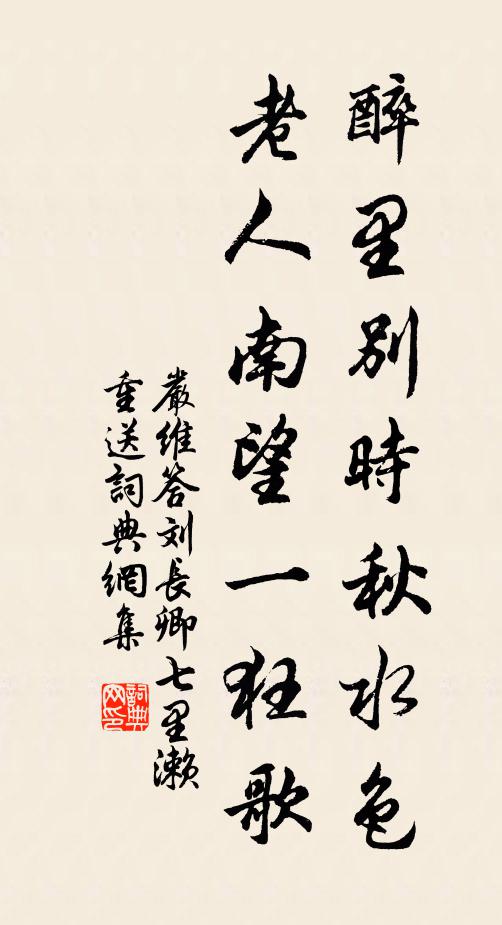 醉里別時秋水色
老人南望一狂歌
嚴維答刘長卿七里瀨
重送詞典網集
詞典网印